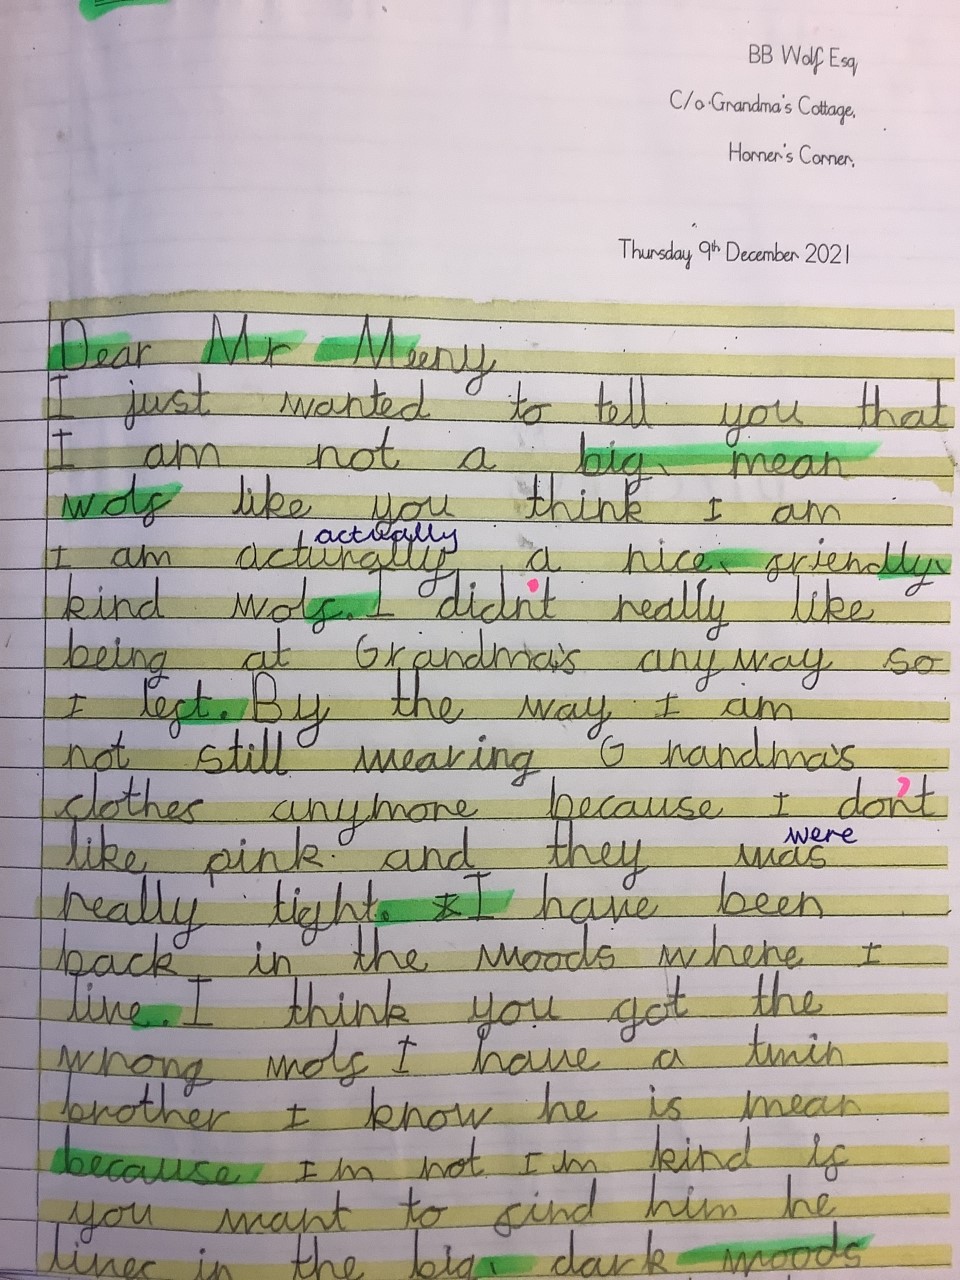 BB Wolf Esq
C/o Grandma's Cottage,
Horner's Corner,
Thursday 9th December 2021
Dear Mr Meeny
I just wanted to tell you that
I am not a big, mean
wolf like you think I am
actually
I am acturally a nice, friendly,
kind wolf. I didn't really like
being at Grandma's anyway so
I left. By the way I am
not still wearing Grandma's
clothes anymore because I don't
were
like pink and they was
really tight. I have been
back in the woods where I
live. I think you got the
wrong wolf I have a twin
brother I know he is mean
because Im not Im kind if
you want to find him he
lives in the big, dark woods